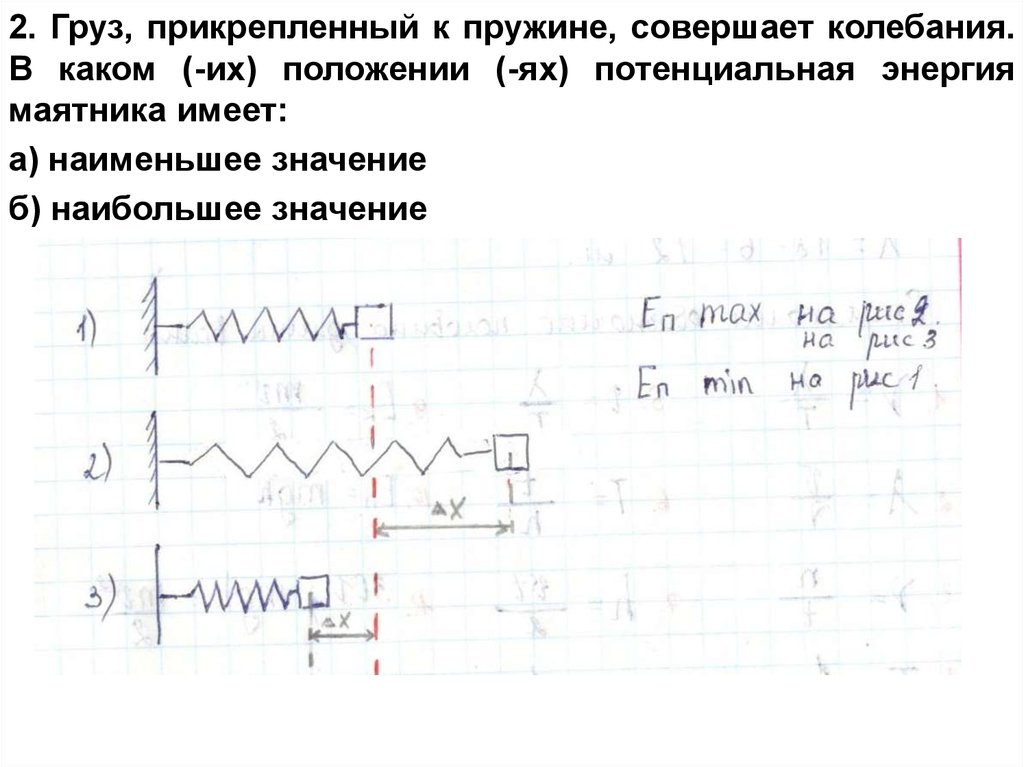 2. Груз, прикрепленный к пружине, совершает колебания.
В каком (-их) положении (-ях) потенциальная энергия
маятника имеет:
а) наименьшее значение
б) наибольшее значение
1)
Eп max на рис 2.
на рис 3
Eп min на рис 1
2)
ΔX
3)
ΔX